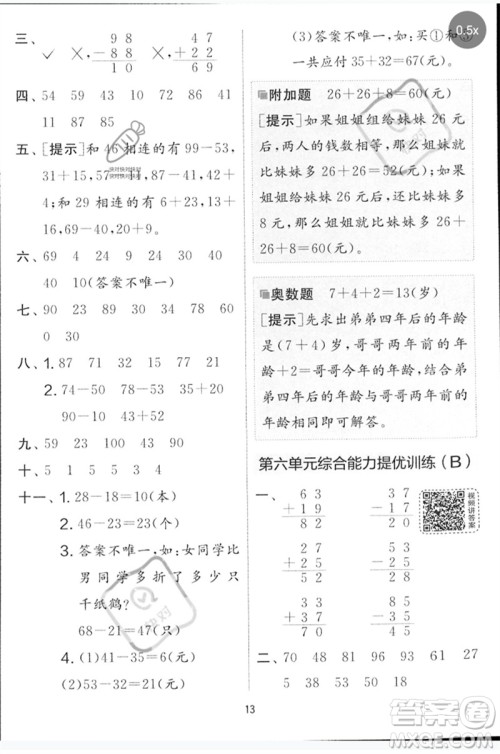 三、 98 47
✓ × −88 × +22
10 69
四、54 59 13 10 72 86 41
11 87 85
五、[提示]和46相连的有99−53,
31+15,57−11,87−41,2+
44。和29相连的有23+6,13+
16,69−40,9+20。
六、69 4 24 90 30 40
40 10(答案不唯一)
七、90 23 89 30 38 79
0 30
八、1. 87 71 16 5 37
2. 74−50 78−53 25+0
90−20 77−7 35+35
九、59 23 100 43
十、65 16 52 57
十一、1. 28−18=10(个)
2. 46−23=23(个)
3. 答案不唯一,如:女同学比
男同学多折了多少只
千纸鹤?
68−21=47(只)
4. (1)41−35=6(元)
(2)53−32=21(元)
(3)答案不唯一,如:买①和③
一共应付35+32=67(元)
0.5x
附加题 26+26+8=60(元)
[提示]如果姐姐给妹妹26元
后,两人的钱数相等,那么姐姐
比妹妹多26+26=52(元);如
果姐姐给妹妹26元后,还多
8元,那么姐姐就比妹妹多
52+8=60(元)。
奥数题 7+4+2=13(岁)
[提示]先求出弟弟四年后的年龄
是(7+4)岁,哥哥两年前的年
龄+2=哥哥今年的年龄,结合弟
弟四年后的年龄与哥哥两年前的
年龄相同即可解答。
第六单元综合能力提优训练(B)
一、 63 35
+19 −15
82 20
视频讲答案
27 53
+25 −25
52 28
33 82
+37 −37
70 45
二、70 48 81 96 93 61 27
5 53 50 18
13
答案圈
MXQE.COM